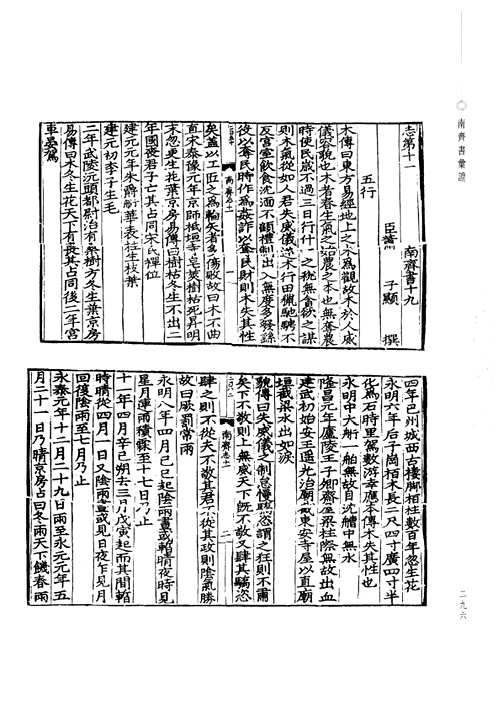 南齊書彙證
二九六
志第十一　南齊書十九
臣蕭　子顯　撰
五行
木傳曰東方易經地上之木爲觀故木於人威
儀容貌也木者春生氣之始農之本也無奪農
時使民歲不過三日行什一之稅無貪欲之謀
則木氣從如人君失威儀逆木行田獵馳騁不
反宮室飲食沈湎不顧禮制出入無度多發繇
役以奪民時作爲姦詐以奪民財則木失其性
南齊志十一
一
矣蓋以工匠之爲輪矢者多傷敗故曰木不曲
直宋泰豫元年京師祇垣寺皁莢樹枯死昇明
末忽更生花葉京房易傳曰樹枯冬生不出二
年國喪君子亡其占同宋氏禪位
建元元年朱爵華表柱生枝葉
建元初李子生毛
二年武陵沅頭都尉治有桑樹方冬生葉京房
易傳曰木冬生花天下有喪其占同後二年宮
車晏駕
四年巴州城西古樓腳柏柱數百年忽生花
永明六年石子崗柏木長二尺四寸廣四寸半
化爲石時車駕數游幸應本傳木失其性也
永明中大舩一舶無故自沈艚中無水
隆昌元年廬陵王子卿齋屋梁柱際無故出血
建武初始安王遙光治廟截東安寺屋以直廟
垣截梁水出如淚
貌傳曰失威儀之制怠慢驕恣謂之狂則不肅
南齊志十一
二
矣下不敬則上無威天下旣不敬又肆其驕恣
肆之則不從夫不敬其君不從其政則陰氣勝
故曰厥罰常雨
永明八年四月己巳起陰雨晝或暫晴夜時見
星月連雨積霖至十七日乃止
十一年四月辛巳朔去三月戊寅起而其間暫
時晴從四月一日又陰雨晝或見日夜乍見月
回復陰雨至七月乃止
永泰元年十二月二十九日雨至永元元年五
月二十一日乃晴京房占曰冬雨天下饑春雨